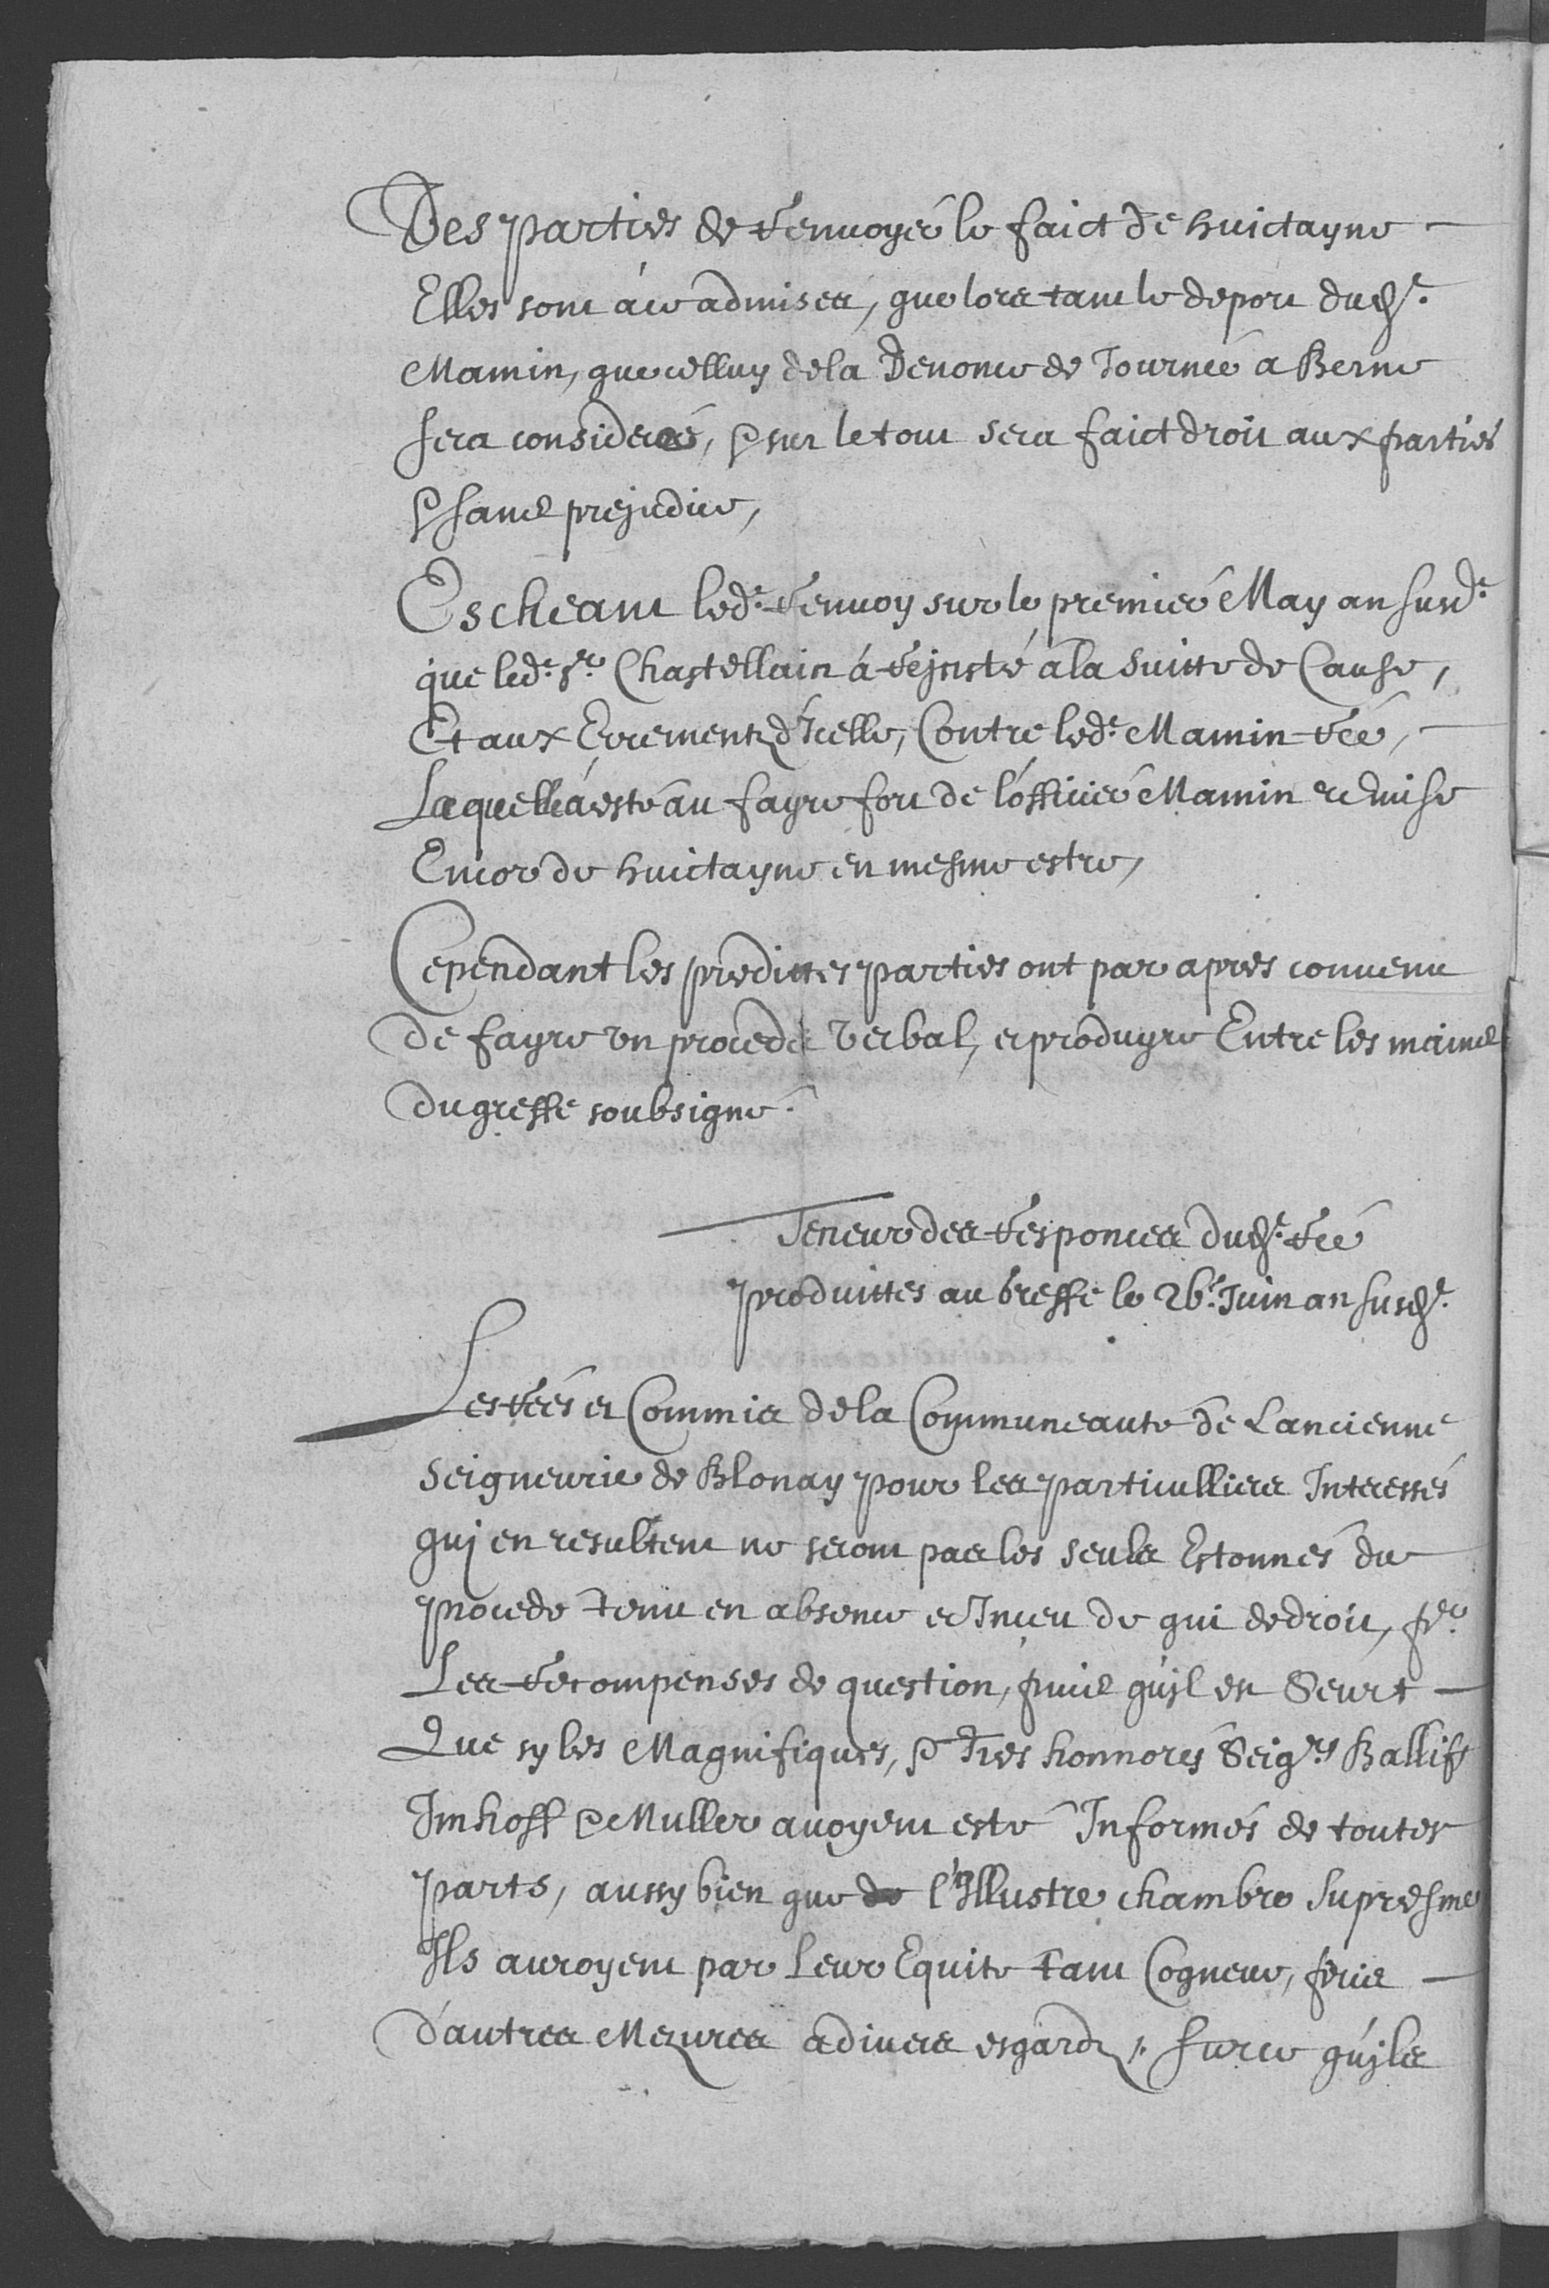 Des parties de Renvoyer le faict de huictayne
Elles sont à ce admises, que lors tant le deport dud.t
Mamin, que celluy de la Denonce de Tournée a Berne
sera consideré, & sur le tout sera faict droit aux parties
& sans prejudice,
Escheant led.t Renvoy sur le premier May an susd.t
que led.t S.r Chastellain á Rejnsté á la suitte de Cause,
Et aux Errementz d'Icelle, Contre led.t Mamin Réé,
Laquelle à esté au fayre fort de l'officier Mamin remise
Encor de huictayne en mesme estre,
Cependant les predittes parties ont par apres convenu
de fayre un procedé verbal, et produyre Entre les mains
du greffe soubsigné.
Teneur des Responces dud.t Réé
produittes au Greffe le 26.e Juin an susd.t
Les Réés et Commis de la Communeauté de Lancienne
Seigneurie de Blonay pour les particulliers Interessés
qui en resultent ne seront pas les seuls Estonnés du
procedé tenu en absence et Inceu de qui de droit,
Les Recompenses de question, puis qu'jl en Seurt
Que sy les Magnifiques, & Tres honnorés Seig.rs Ballifs
Imhoff & Muller avoyent esté Informés de toutes
parts, aussy bien que l'Illustre chambre supresme
Ils auroyent par Leur Equité tant Cogneue, pris
d'autres Mezures a divers esgardz, sur ce qu'jls